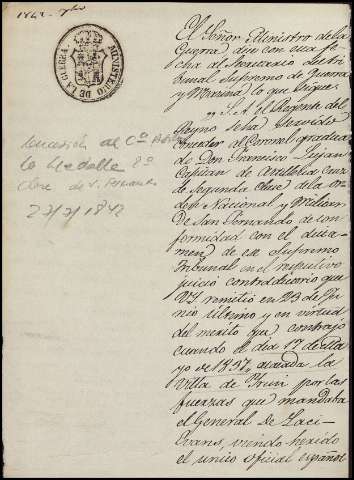 1842
MINISTERIO DE LA GUERRA.
El Señor Ministro de la
Guerra dijo con esta fe-
cha al Secretario del tri-
bunal Supremo de Guerra
y Marina lo que sigue:
„ S. A. el Regente del
Reyno se ha servido
conceder al Coronel gradua-
do Don Francisco Lujan
Capitan de Artilleria cruz
de segunda clase de la or-
den Nacional y Militar
de San Fernando de con-
formidad con el dicta-
men de ese Supremo
Tribunal en el respectivo
juicio contradictorio que
V.S. remitió en 23 de Ju-
nio último y en virtud
del merito que contrajo
cuando el dia 17 de Ma-
yo de 1837, atacada la
villa de Irun por las
fuerzas que mandaba
el General de Laci-
Evans, siendo herido
el unico oficial español
concesión al
la Medalla 2ª
clase de S. Fernando
27/7/1842